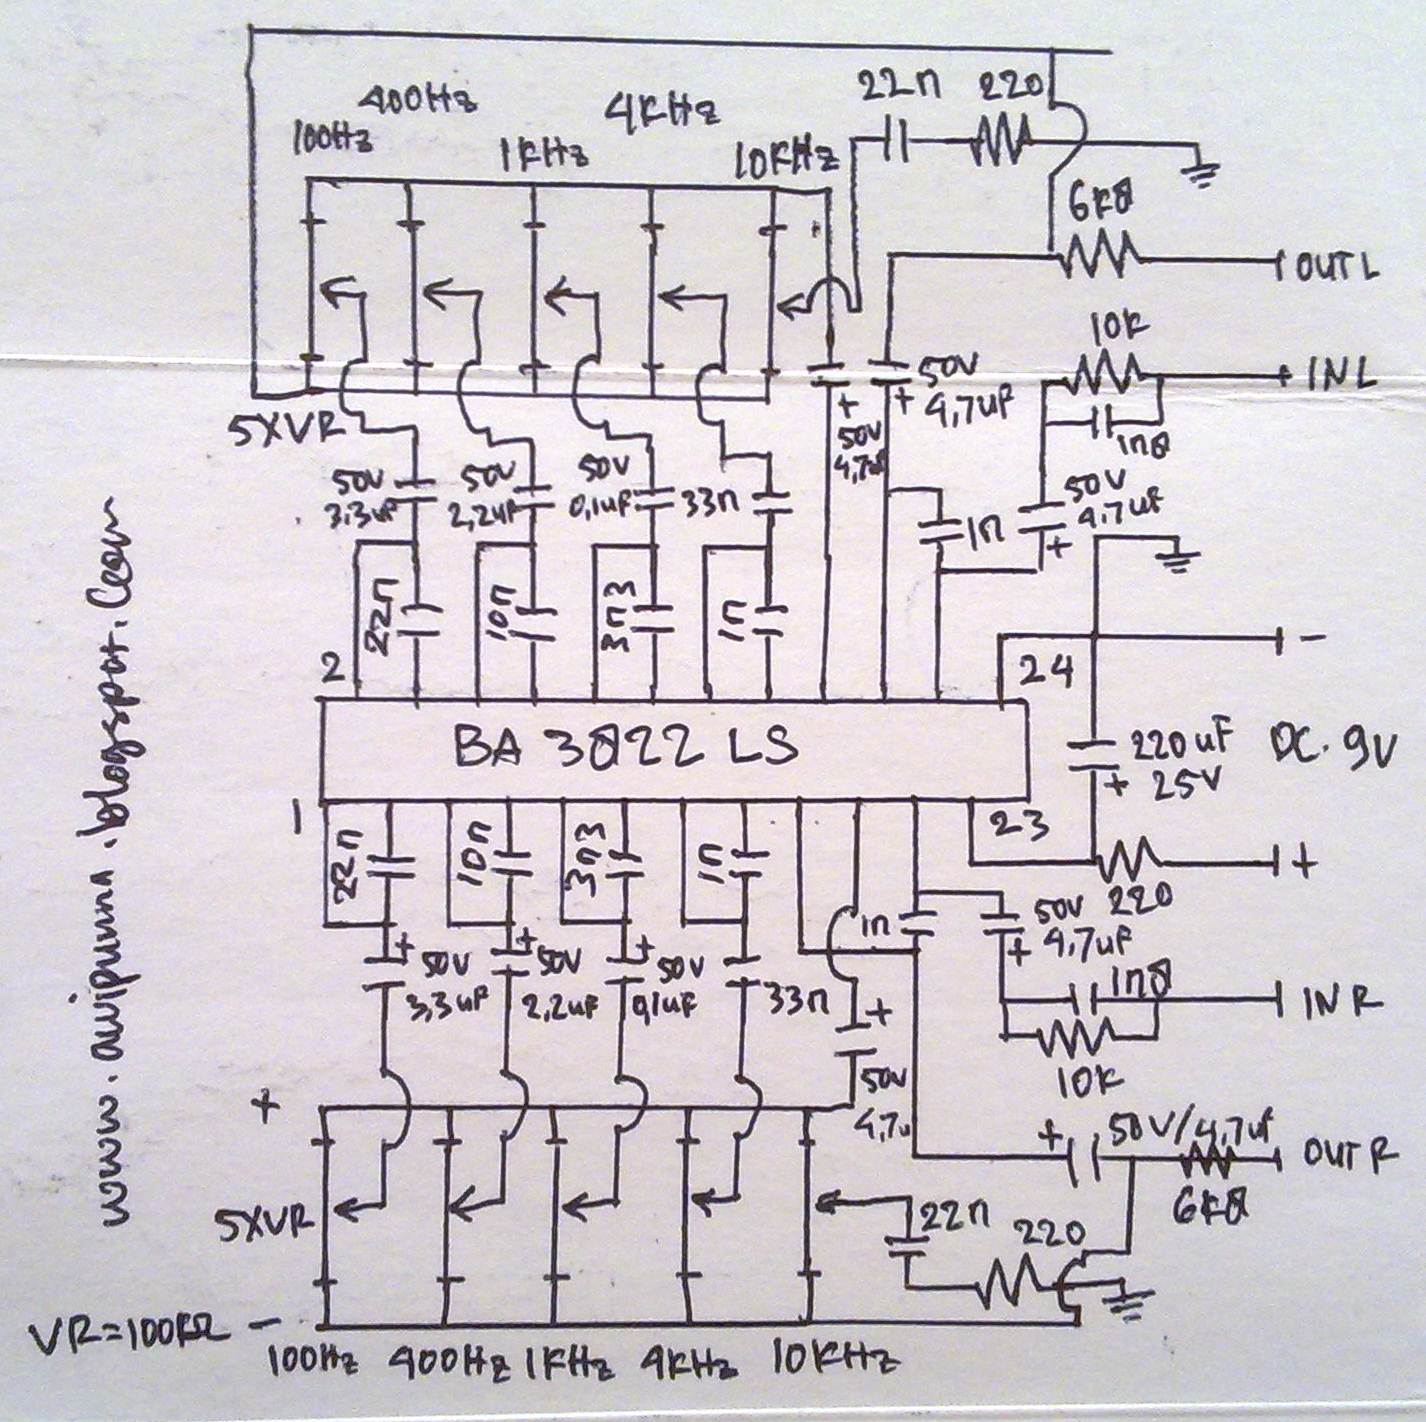 22n 220
400Hz 4KHz
100Hz 1KHz 10KHz
6K8
OUT L
10K
50V
4,7uF
+ INL
+ +
50V
4,7uF
1n8
5XVR
50V 50V 50V
3,3uF 2,2uF 0,1uF 33n
50V
4,7uF
+
1n
22n 10n 3n3 1n
2 24 -
BA 3822 LS
220uF DC. 9V
+ 25V
1 23
22n 10n 3n3 1n
+
220
1n
50V
+ 4,7uF
+ + +
50V 50V 50V
3,3uF 2,2uF 0,1uF 33n
1n8
INR
+
10K
50V
4,7u
+
+ 50V/4,7uF
OUT R
6K8
5XVR
22n 220
VR=100KΩ -
100Hz 400Hz 1KHz 4KHz 10KHz